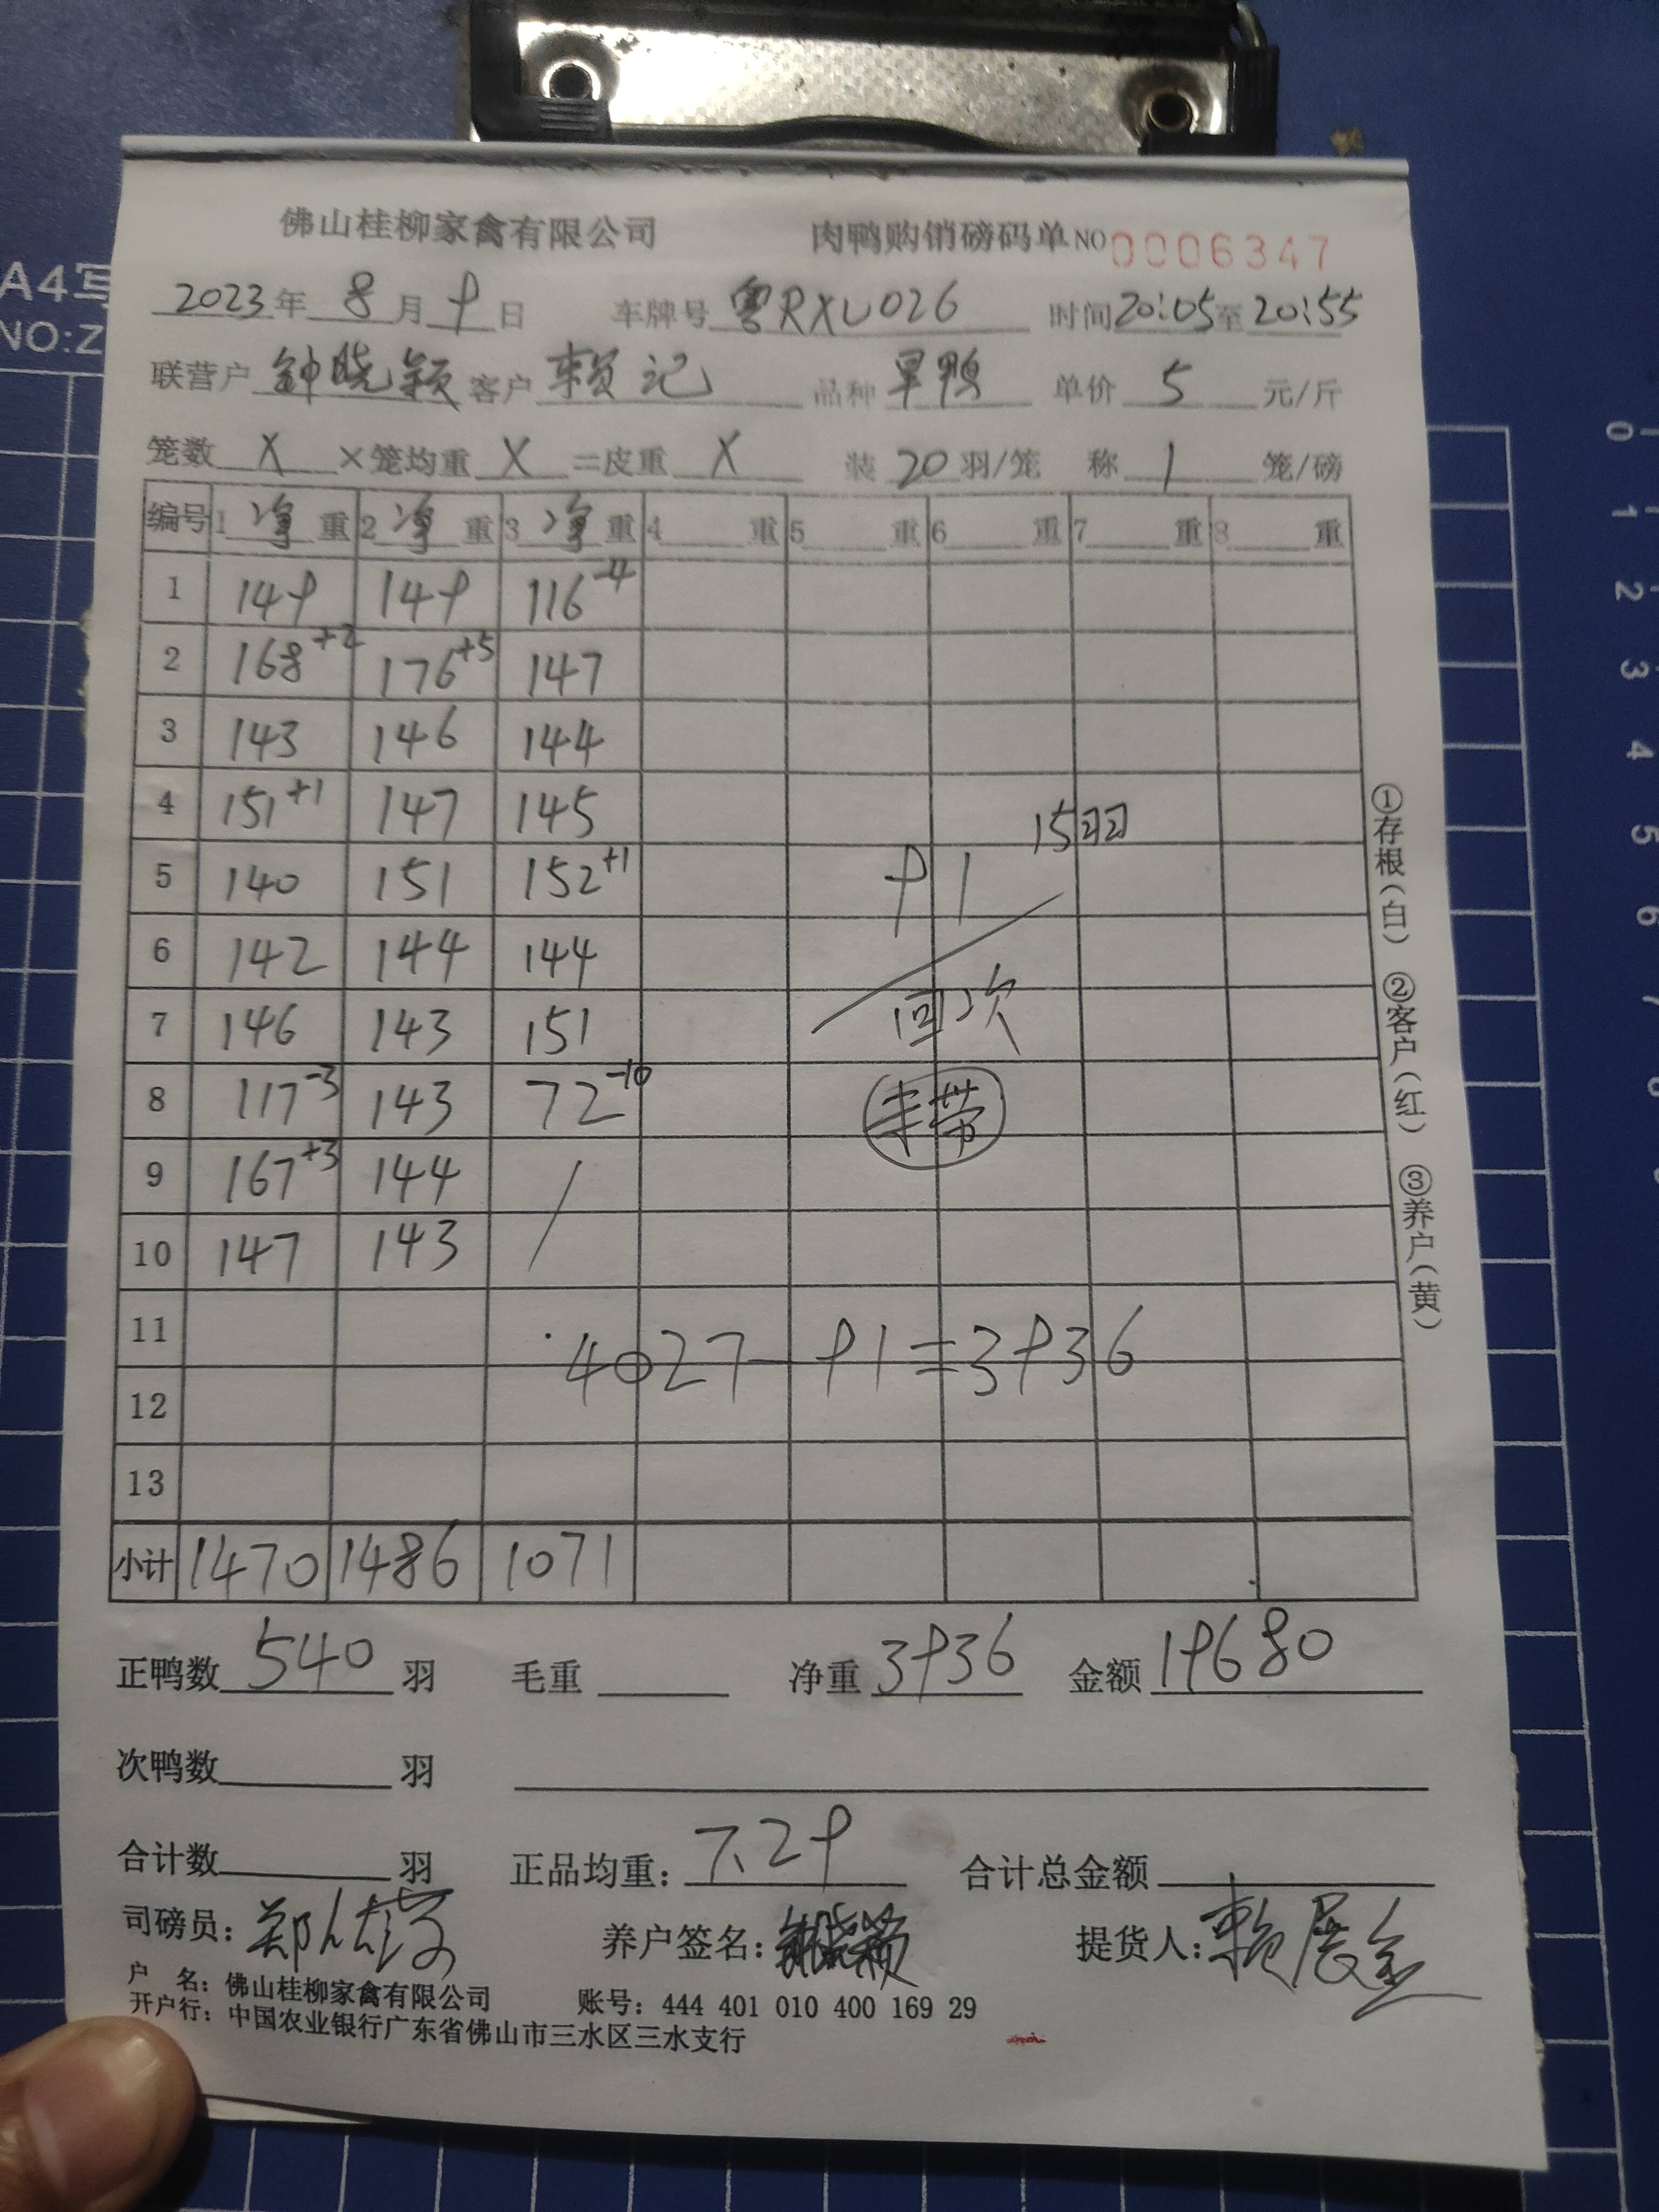 佛山桂柳家禽有限公司 肉鸭购销磅码单 NO 0006347
2023年 8月 9日 车牌号 粤RXU026 时间 20:05 至 20:55
联营户 钟晓颖 客户 赖记 品种 旱鸭 单价 5 元/斤
笼数 X ×笼均重 X =皮重 X 装 20 羽/笼 称 1 笼/磅
编号 1 净 重 2 净 重 3 净 重 4 重 5 重 6 重 7 重 8 重
1 149 149 116-4
2 168+2 176+5 147
3 143 146 144
4 151+1 147 145
15羽
5 140 151 152+1
91
6 142 144 144
7 146 143 151
回次
8 117-3 143 72-10
9 167+3 144 /
10 147 143
11
4027-91=3936
12
13
小计 1470 1486 1071
正鸭数 540 羽 毛重 净重 3936 金额 19680
次鸭数 羽
合计数 羽 正品均重: 7.29 合计总金额
司磅员: 郑 养户签名: 钟晓颖 提货人: 赖
户 名: 佛山桂柳家禽有限公司 账号: 444 401 010 400 169 29
开户行: 中国农业银行广东省佛山市三水区三水支行
①存根(白) ②客户(红) ③养户(黄)
A4写
NO:Z
0
1
2
3
4
5
6
7
8